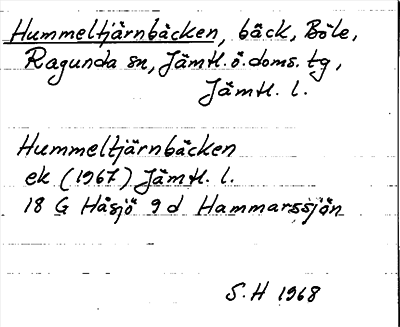 Hummeltjärnbäcken, bäck, Böle,
Ragunda sn, Jämtl. ö. doms. tg,
Jämtl. l.
Hummeltjärnbäcken
ek (1967) Jämtl. l.
18 G Håsjö 9 d Hammarssjön
S.H 1968